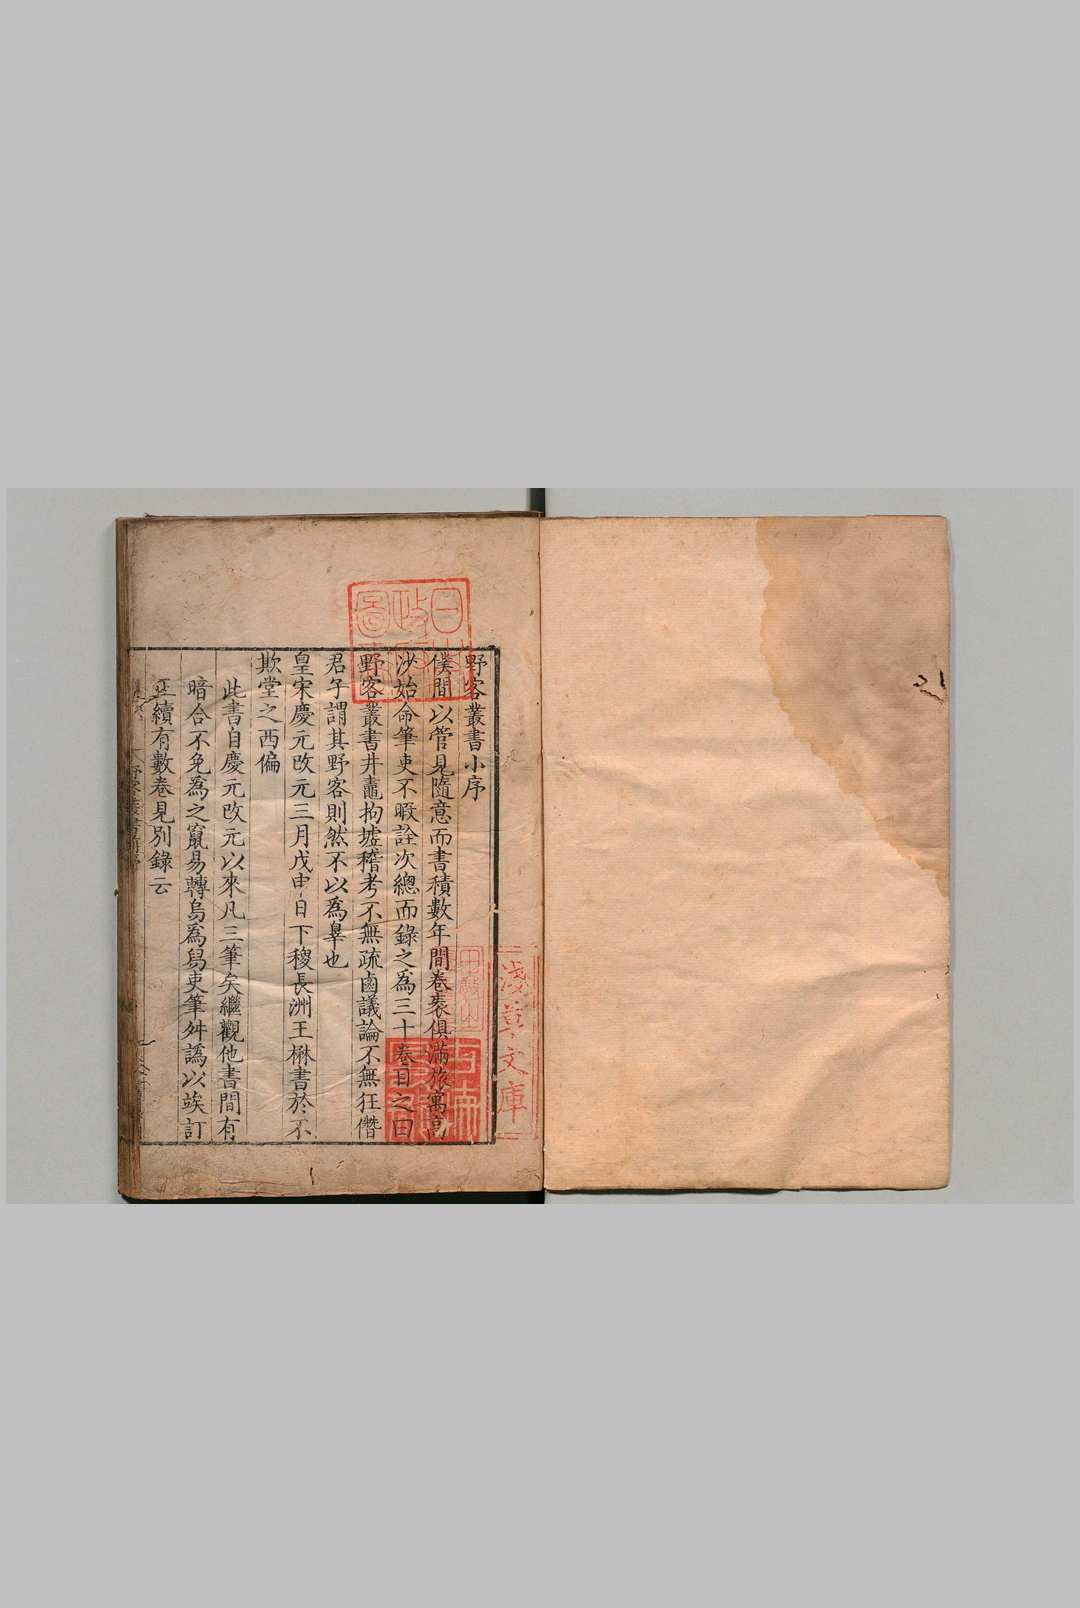 野客叢書小序
僕間以管見隨意而書積數年間卷袠俱滿旅寓高
沙始命筆吏不暇詮次總而錄之為三十卷目之曰
野客叢書井鼃拘墟稽考不無疏鹵議論不無狂僭
君子謂其野客則然不以為辠也
皇宋慶元改元三月戊申日下稷長洲王楙書於不
欺堂之西偏
此書自慶元改元以來凡三筆矣繼觀他書間有
暗合不免為之竄易轉烏為舄吏筆舛譌以竢訂
正續有數卷見別錄云
淺草文庫